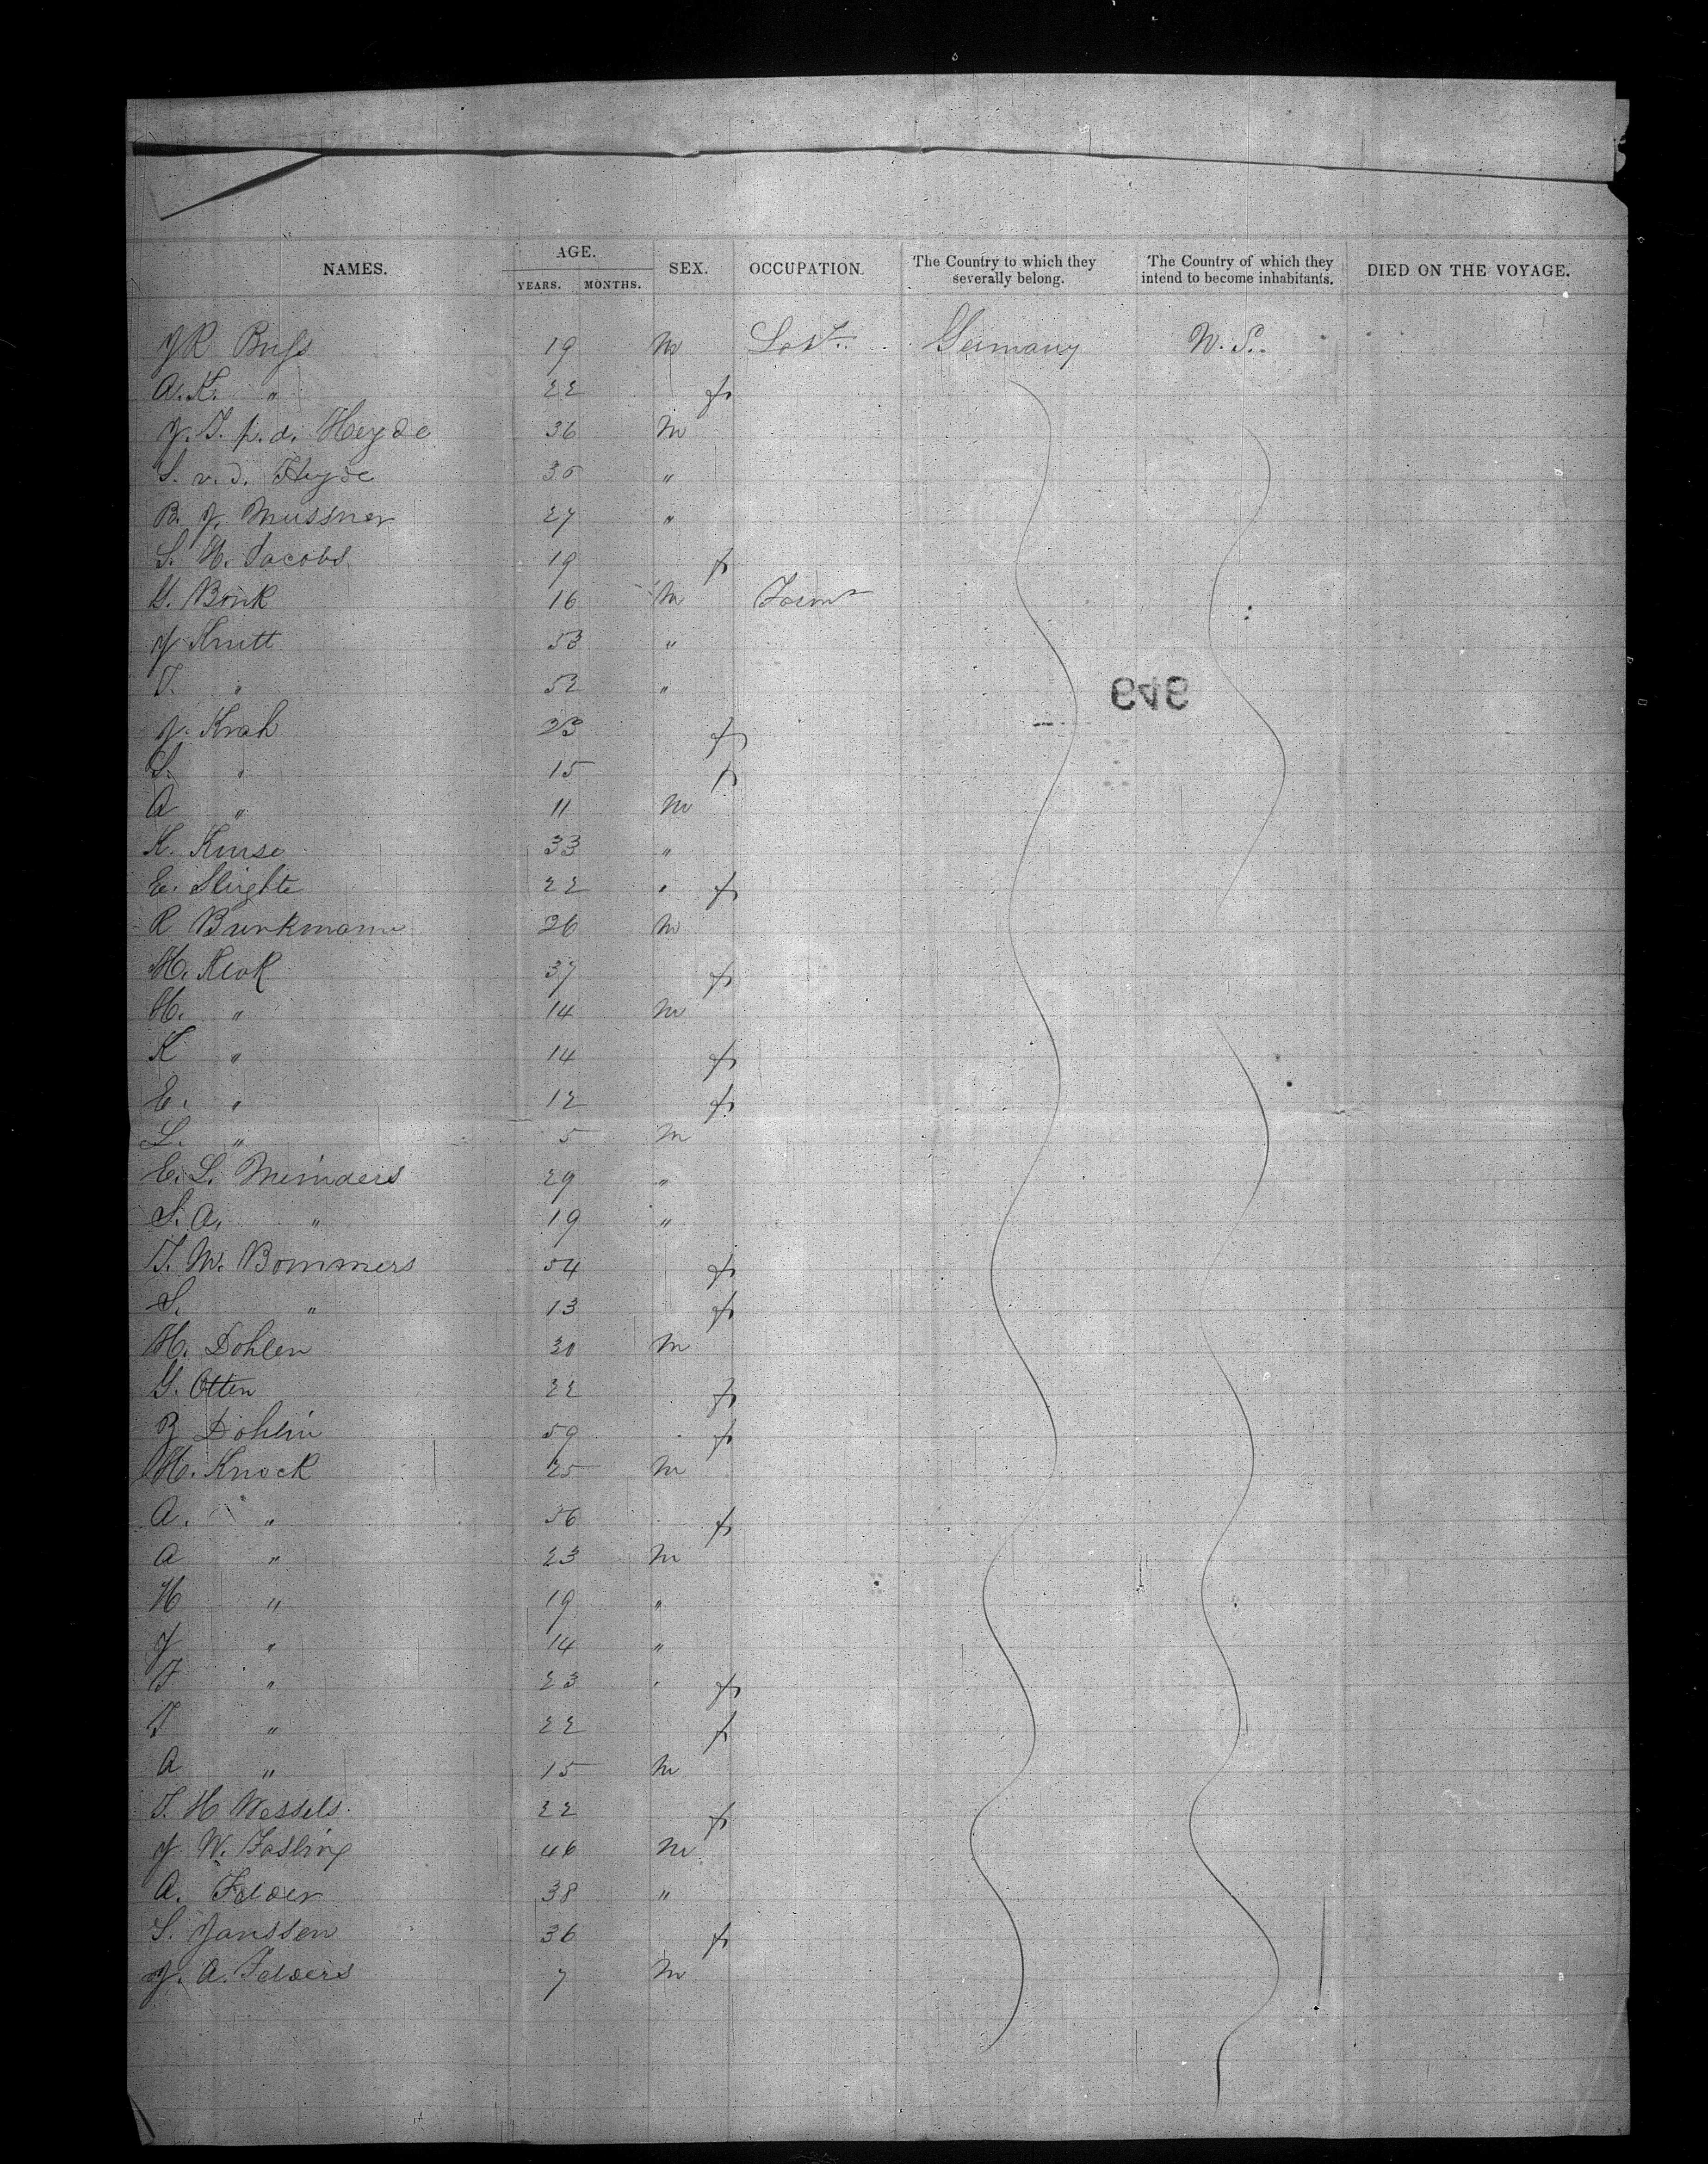 NAMES. AGE. YEARS. MONTHS. SEX. OCCUPATION. The Country to which they severally belong. The Country of which they intend to become inhabitants. DIED ON THE VOYAGE.
J R Buss 19 m Germany U. S.
A. K. " 22 f
J. T. v. d. Heyde 36 m
S. v. d. Heyde 36 "
B. J. Mussner 27 "
S. H. Jacobs 19 f
G. Bonk 16 m Farmr
J Knutt 53 "
T. " 52 "
J. Krah 23 f
S. " 15 f
A " 11 m
K. Kruse 33 "
E. Slughte 22 " f
R Burkmann 26 m
H. Klok 37 f
H. " 14 m
K " 14 f
E. " 12 f
L. " 5 m
E. L. Meinders 29 "
S. A. " 19 "
T. M. Bommers 54 f
S. " 13 f
H. Dohlen 30 m
G. Otten 22 f
Z Dohlen 59 f
H. Knock 25 m
A. " 56 f
A " 23 m
H " 19 "
J " 14 "
F " 23 f
T " 22 f
A " 15 m
T. H Wessels 22 f
J. W. Fasling 46 m
A. Felder 38 "
S. Janssen 36 f
J. A. Felders 7 m
646